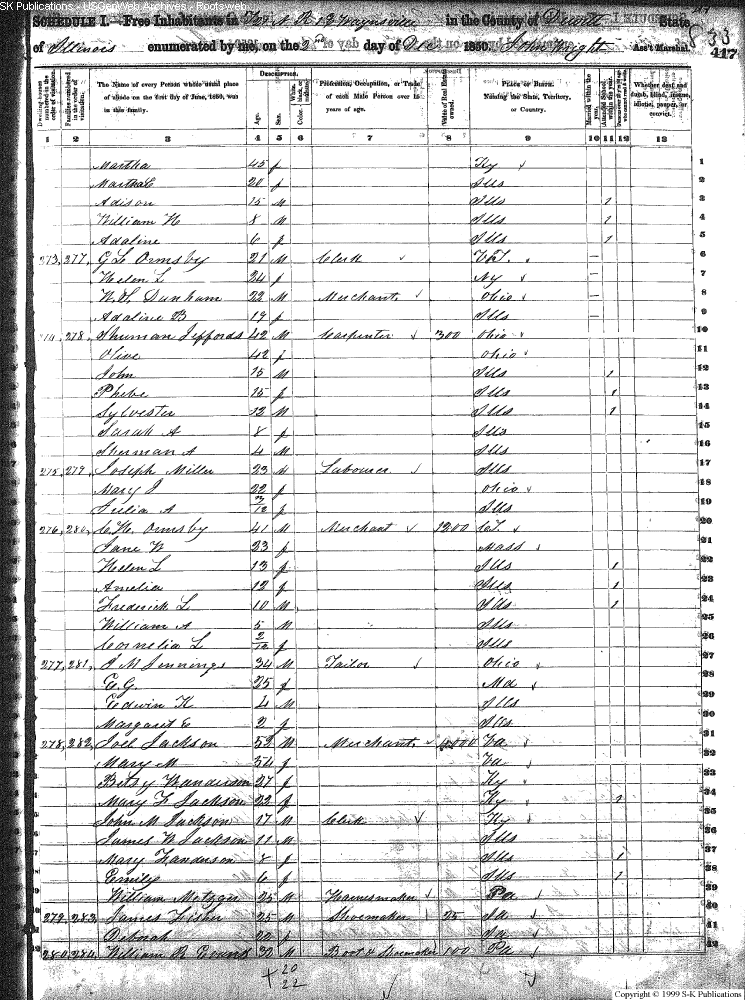 SK Publications - USGenWeb Archives - Rootsweb
SCHEDULE I.—Free Inhabitants in T 21 N R 1 E Waynsville in the County of Dewitt State
of Illinois enumerated by me, on the 2nd day of Dec 1850. John Wright Ass't Marshal.
833
417
Dwelling-houses numbered in the order of visitation.
Families numbered in the order of visitation.
The Name of every Person whose usual place of abode on the first day of June, 1850, was in this family.
DESCRIPTION.
Age.
Sex.
Color
Profession, Occupation, or Trade of each Male Person over 15 years of age.
Value of Real Estate owned.
PLACE OF BIRTH. Naming the State, Territory, or Country.
Married within the year.
Whether deaf and dumb, blind, insane, idiotic, pauper, or convict.
1 2 3 4 5 6 7 8 9 10 11 12 13
Martha 45 f Ky 1
Martha C 20 f Ills 2
Adison 15 M Ills 1 3
William H 8 M Ills 1 4
Adaline 6 f Ills 1 5
273, 277, G L Ormsby 21 M Clerk VT. — 6
Helen L 24 f NY — 7
W. S. Dunham 22 M Merchant Ohio — 8
Adaline B 19 f Ills — 9
274, 278, Shuman Jeffords 42 M Carpenter 300 Ohio 10
Olive 42 f Ohio 11
John 15 M Ills 1 12
Phebe 15 f Ills 1 13
Sylvester 12 M Ills 1 14
Sarah A 8 f Ills 15
Sherman A 4 M Ills 16
275, 279, Joseph Miller 23 M Labourer Ills 17
Mary J 22 f Ohio 18
Julia A 3/12 f Ills 19
276, 280, C. H. Ormsby 41 M Merchant 1200 Ct. 20
Jane W 23 f Mass 21
Helen L 13 f Ills 1 22
Amelia 12 f Ills 1 23
Frederick L 10 M Ills 1 24
William A 5 M Ills 25
Cornelia L 2/12 f Ills 26
277, 281, J M Jennings 34 M Tailor Ohio 27
E. G. 25 f Md 28
Edwin K 4 M Ills 29
Margaret E 2 f Ills 30
278, 282, Joel Jackson 52 M Merchant 4000 Va 31
Mary M 54 f Va 32
Betsy W anderson 27 f Ky 33
Mary F Jackson 22 f Ky 1 34
John M Jackson 17 M Clerk Ky 35
James W Jackson 11 M Ills 36
Mary F anderson 8 f Ills 1 37
Emily 6 f Ills 1 38
William Metzger 25 M Harnesmaker Pa 39
279, 283, James Fisher 25 M Shoemaker 25 Ia 40
Deborah 22 f Ia 41
280, 284, William R Evans 32 M Boot & Shoemaker 100 Pa 42
+ 20
22
Copyright © 1999 S-K Publications